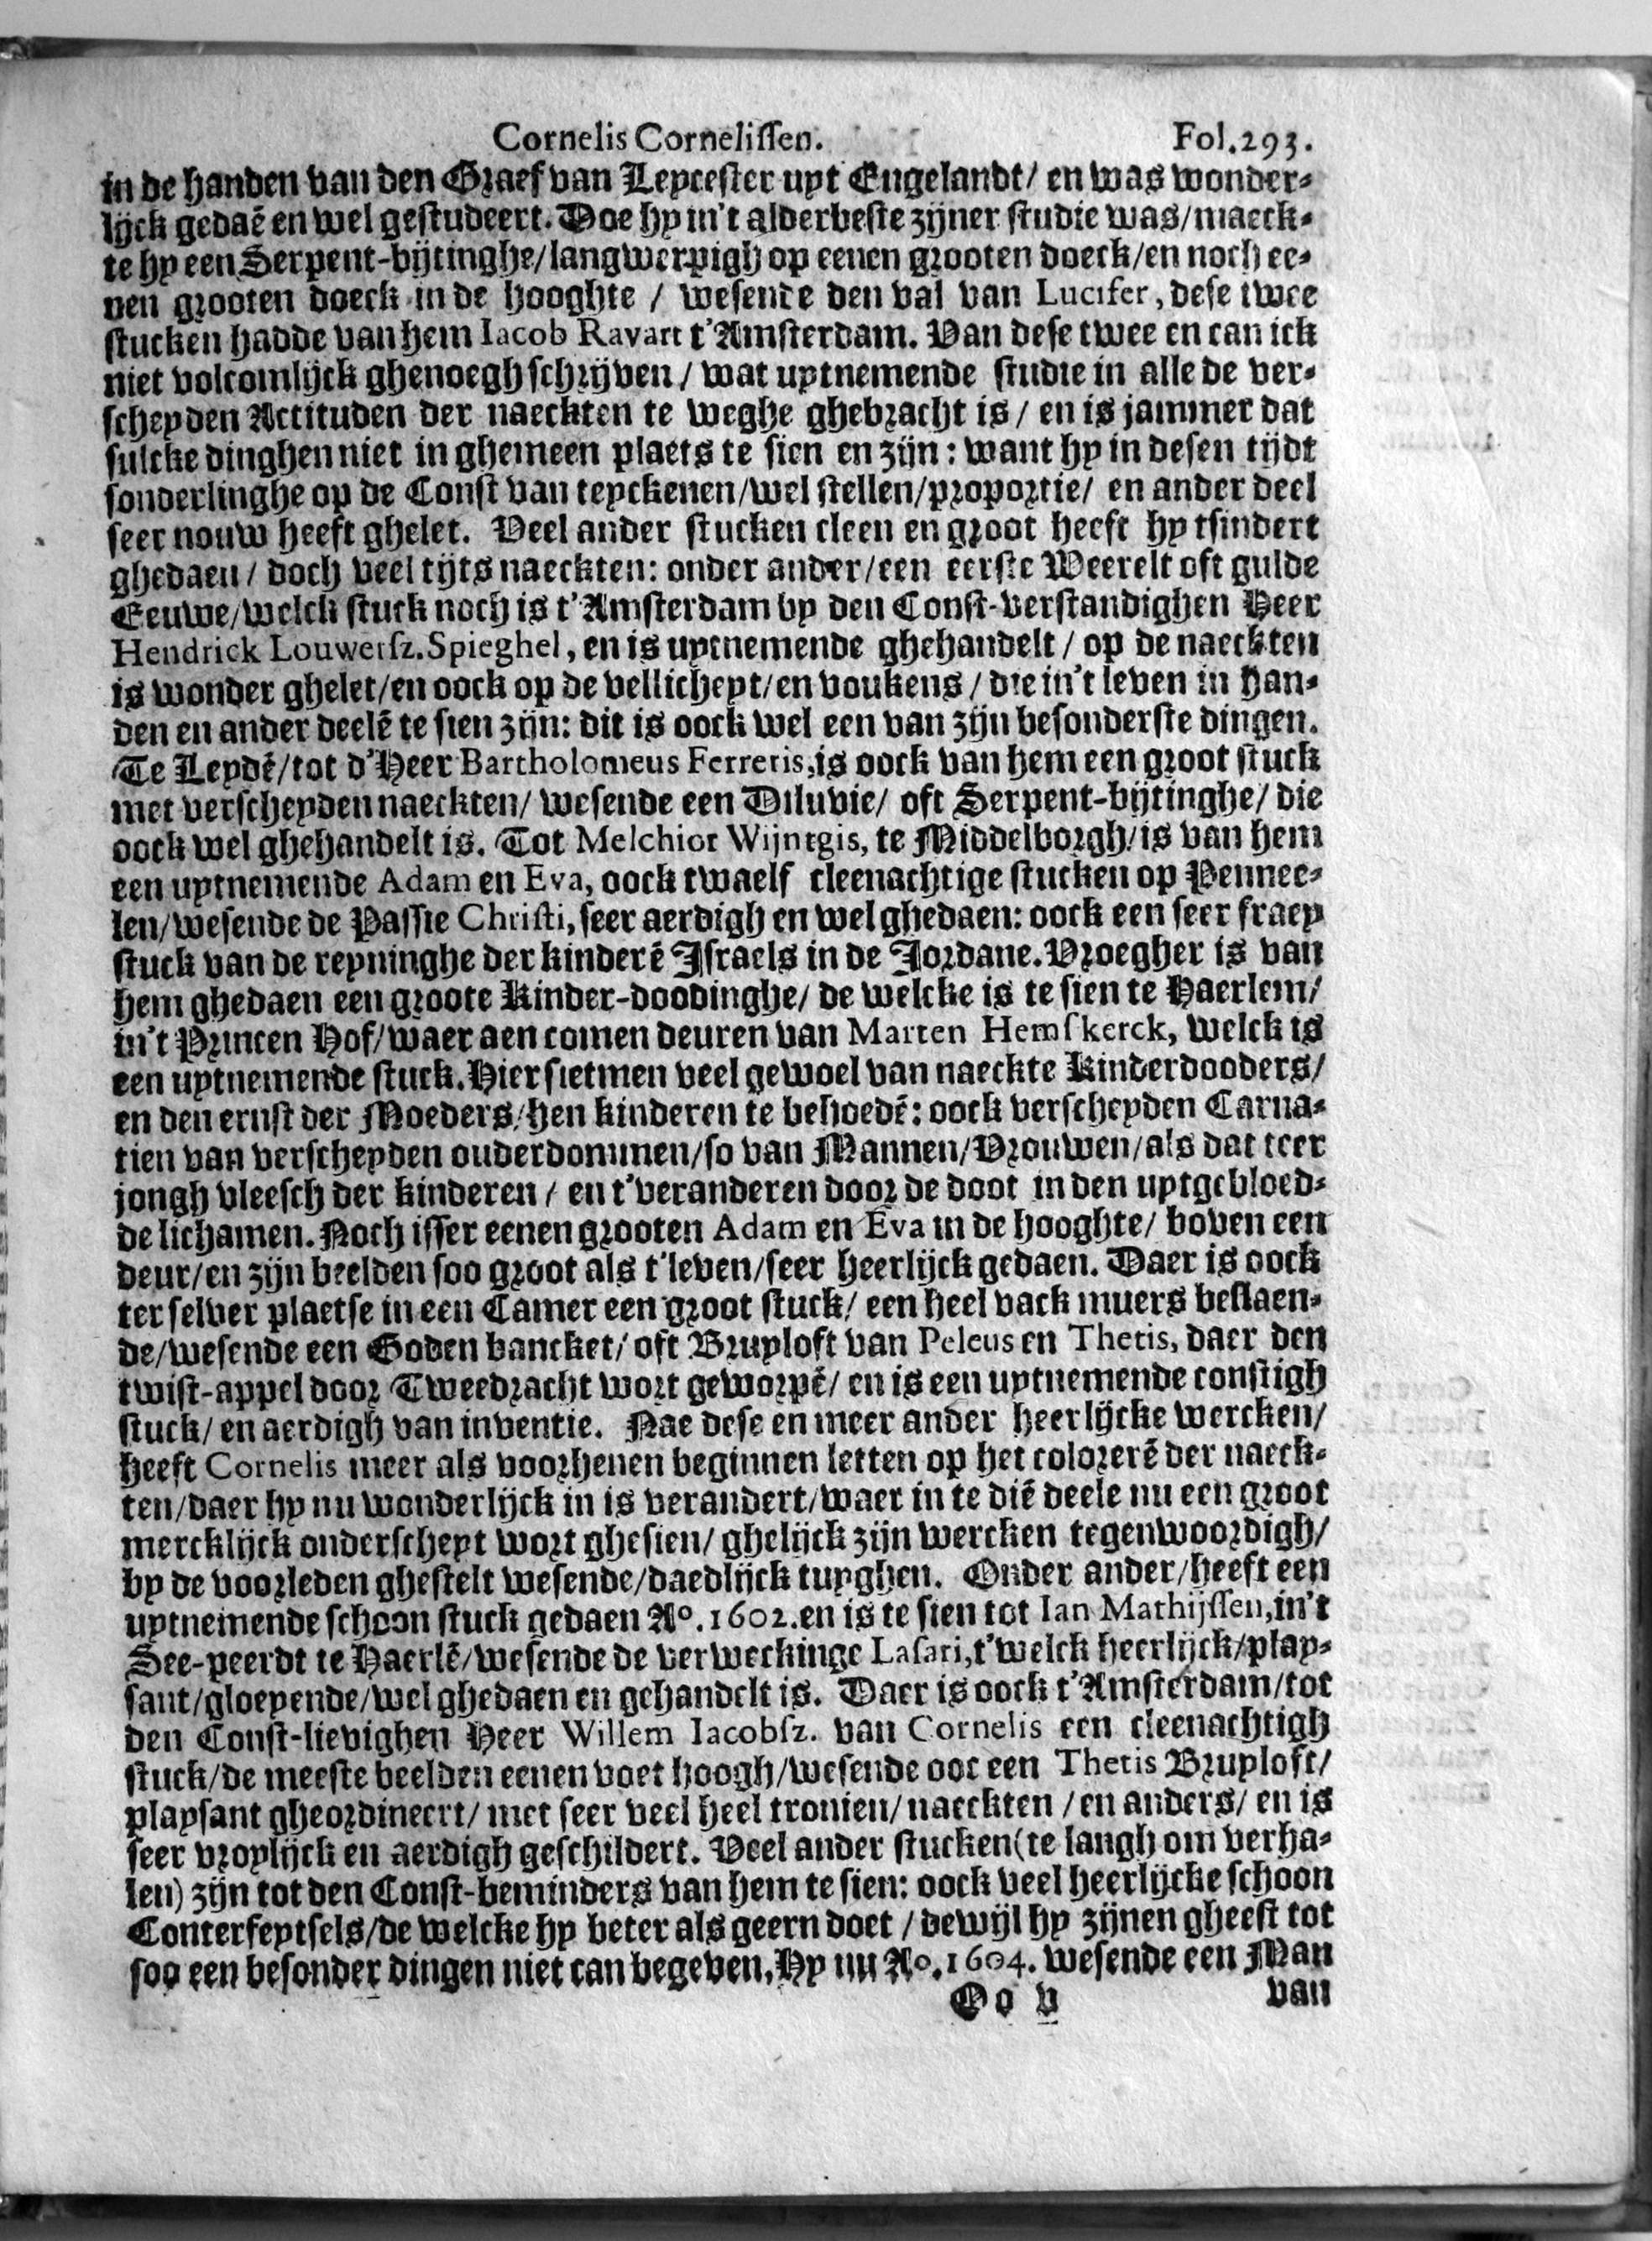 Cornelis Cornelissen. Fol.293.
in de handen van den Graef van Leycester uyt Engelandt/ en was wonder-
lijck gedaē en wel gestudeert. Doe hy in't alderbeste zijner studie was/maeck-
te hy een Serpent-bijtinghe/langwerpigh op eenen grooten doeck/en noch ee-
nen grooten doeck in de hooghte / wesende den val van Lucifer, dese twee
stucken hadde van hem Iacob Ravart t'Amsterdam. Van dese twee en can ick
niet volcomlijck ghenoegh schrijven / wat uytnemende studie in alle de ver-
scheyden Actituden der naeckten te weghe ghebracht is / en is jammer dat
sulcke dinghen niet in ghemeen plaets te sien en zijn: want hy in desen tijdt
sonderlinghe op de Const van teyckenen/wel stellen/proportie/ en ander deel
seer nouw heeft ghelet. Veel ander stucken cleen en groot heeft hy tsindert
ghedaen / doch veel tijts naeckten: onder ander/een eerste Weerelt oft gulde
Eeuwe/welck stuck noch is t'Amsterdam by den Const-verstandighen Heer
Hendrick Louwersz.Spieghel, en is uytnemende ghehandelt / op de naeckten
is wonder ghelet/en oock op de vellicheyt/en voukens / die in't leven in han-
den en ander deelē te sien zijn: dit is oock wel een van zijn besonderste dingen.
Te Leydē/tot d'Heer Bartholomeus Ferreris, is oock van hem een groot stuck
met verscheyden naeckten/ wesende een Diluvie/ oft Serpent-bijtinghe/ die
oock wel ghehandelt is. Tot Melchior Wijntgis, te Middelborgh/is van hem
een uytnemende Adam en Eva, oock twaelf cleenachtige stucken op Pennee-
len/wesende de Passie Christi, seer aerdigh en wel ghedaen: oock een seer fraey
stuck van de reyninghe der kinderē Israels in de Jordane. Vroegher is van
hem ghedaen een groote Kinder-doodinghe/ de welcke is te sien te Haerlem/
in't Princen Hof/waer aen comen deuren van Marten Hemskerck, welck is
een uytnemende stuck. Hier sietmen veel gewoel van naeckte Kinderdooders/
en den ernst der Moeders/hen kinderen te behoedē: oock verscheyden Carna-
tien van verscheyden ouderdommen/so van Mannen/Vrouwen/als dat teer
jongh vleesch der kinderen / en t'veranderen door de doot in den uytgebloed-
de lichamen. Noch isser eenen grooten Adam en Eva in de hooghte/ boven een
deur/en zijn beelden soo groot als t'leven/seer heerlijck gedaen. Daer is oock
ter selver plaetse in een Camer een groot stuck/ een heel vack muers beslaen-
de/wesende een Goden bancket/ oft Bruyloft van Peleus en Thetis, daer den
twist-appel door Tweedracht wort geworpē/ en is een uytnemende constigh
stuck/ en aerdigh van inventie. Nae dese en meer ander heerlijcke wercken/
heeft Cornelis meer als voorhenen beginnen letten op het colorerē der naeck-
ten/daer hy nu wonderlijck in is verandert/waer in te diē deele nu een groot
mercklijck onderscheyt wort ghesien/ ghelijck zijn wercken tegenwoordigh/
by de voorleden ghestelt wesende/daedlijck tuyghen. Onder ander/heeft een
uytnemende schoon stuck gedaen Ao.1602.en is te sien tot Ian Mathijssen,in't
See-peerdt te Haerlē/wesende de verweckinge Lasari,t'welck heerlijck/play-
sant/gloeyende/wel ghedaen en gehandelt is. Daer is oock t'Amsterdam/tot
den Const-lievighen Heer Willem Iacobsz. van Cornelis een cleenachtigh
stuck/de meeste beelden eenen voet hoogh/wesende ooc een Thetis Bruyloft/
playsant gheordineert/ met seer veel heel tronien/naeckten / en anders/ en is
seer vroylijck en aerdigh geschildert. Veel ander stucken(te langh om verha-
len) zijn tot den Const-beminders van hem te sien: oock veel heerlijcke schoon
Conterfeytsels/de welcke hy beter als geern doet / dewijl hy zijnen gheest tot
soo een besonder dingen niet can begeven. Hy nu Ao.1604. wesende een Man
Oo v van